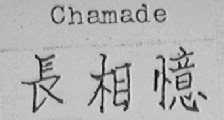 Chamade
長相憶